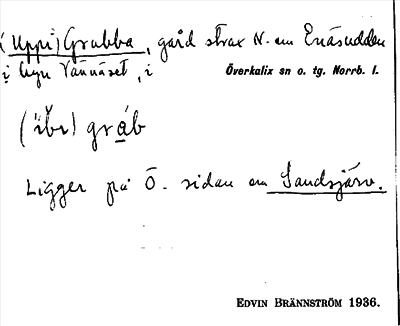 (Uppi) Grubba, gård strax N. om Enäsudden
i byn Vännäset, i Överkalix sn o. tg. Norrb. l.
(ĭbɩ) gráb
Ligger på Ö. sidan om Landsjärv.
EDVIN BRÄNNSTRÖM 1936.